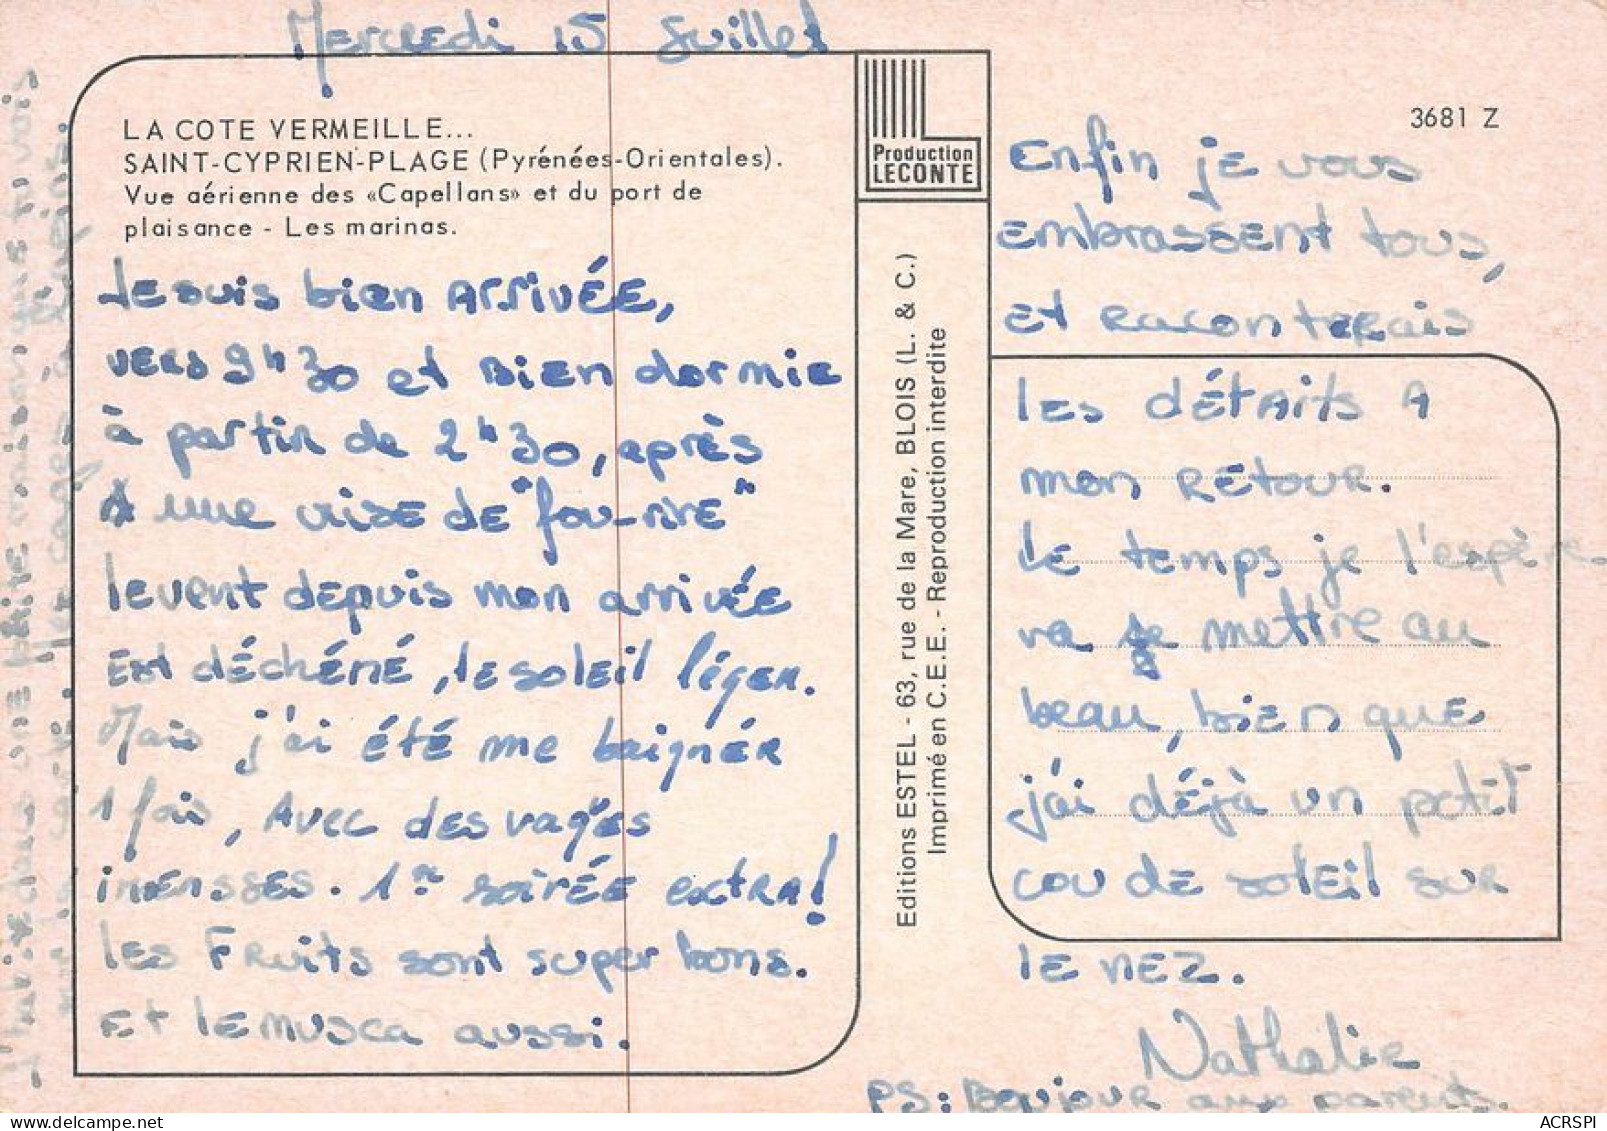 Mercredi 15 Juillet
LA COTE VERMEILLE...
SAINT-CYPRIEN-PLAGE (Pyrénées-Orientales).
Vue aérienne des «Capellans» et du port de
plaisance - Les marinas.
Je suis bien ARRIVÉE,
vers 9h30 et Bien dormie
à partir de 2h30, après
une crise de "fou-rire"
levent depuis mon arrivée
Est déchéné, le soleil léger.
Mais j'ai été me baignér
1 fois, Avec des vagues
imensses. 1re soirée extra!
les Fruits sont super bons.
Et le musca aussi.
J'habite dans une petite maison
Production
LECONTE
Editions ESTEL - 63, rue de la Mare, BLOIS (L. & C.)
Imprimé en C.E.E. - Reproduction interdite
3681 Z
Enfin je vous
embrassent tous,
et raconterais
les détAits A
mon retour.
le temps je l'espère
va se mettre au
beau, bien que
j'ai déjà un petit
cou de soleil sur
le nez.
Nathalie
PS: Bonjour aux parents.
ACRSPI